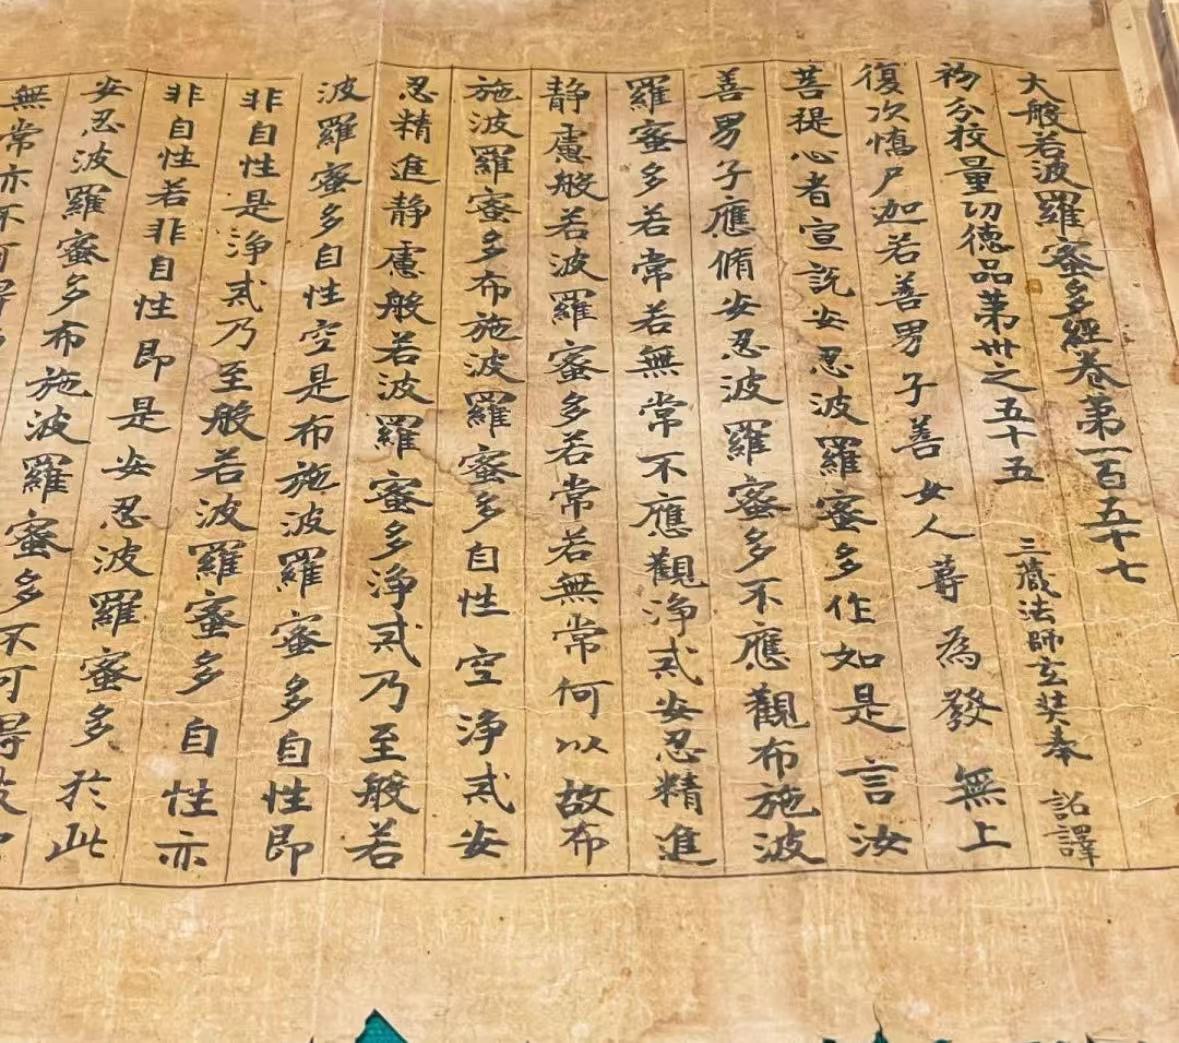 大般若波羅蜜多經卷第一百五十七
初分校量功德品第卅之五十五 三藏法師玄奘奉 詔譯
復次憍尸迦若善男子善女人等為發無上
菩提心者宣說安忍波羅蜜多作如是言汝
善男子應脩安忍波羅蜜多不應觀布施波
羅蜜多若常若無常不應觀淨戒安忍精進
靜慮般若波羅蜜多若常若無常何以故布
施波羅蜜多布施波羅蜜多自性空淨戒安
忍精進靜慮般若波羅蜜多淨戒乃至般若
波羅蜜多自性空是布施波羅蜜多自性即
非自性是淨戒乃至般若波羅蜜多自性亦
非自性若非自性即是安忍波羅蜜多於此
安忍波羅蜜多布施波羅蜜多不可得彼
無常亦不可得